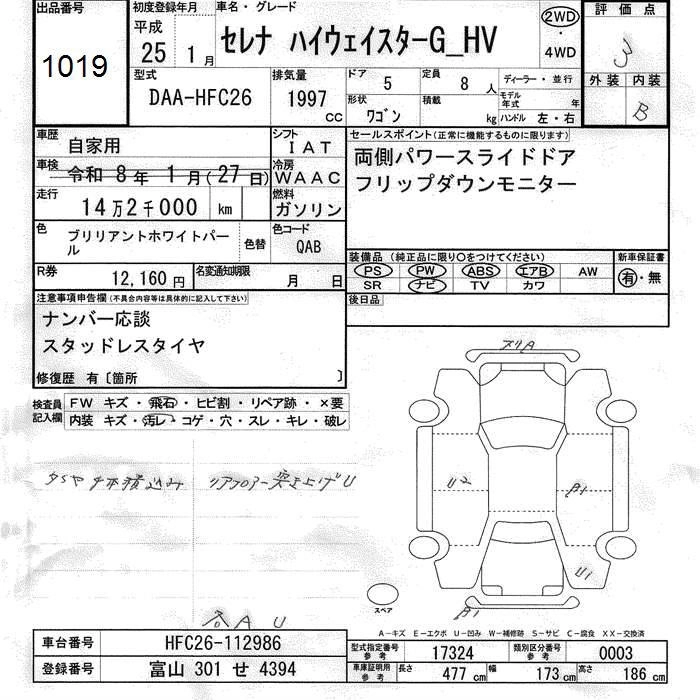 出品番号
1019
初度登録年月
平成
25 1月
車名・グレード
セレナ ハイウェイスターG_HV
2WD
・
4WD
評価点
3
外装 内装
B
型式
DAA-HFC26
排気量
1997
CC
ドア
5
定員
8 人
形状
ワゴン
積載
kg
ディーラー・並行
モデル
年式 年
ハンドル 左・右
車歴
自家用
シフト
IAT
車検
令和 8年 1月(27日)
冷房
WAAC
走行
14万2千000 km
燃料
ガソリン
色
ブリリアントホワイトパール
色替
色コード
QAB
R券
12,160円
名変通知期限
月 日
セールスポイント(正常に機能するものに限ります)
両側パワースライドドア
フリップダウンモニター
装備品 (純正品に限り○をつけてください)
PS PW ABS エアB AW
SR ナビ TV カワ
新車保証書
有・無
後日品
注意事項申告欄(不具合内容等は具体的に記入して下さい)
ナンバー応談
スタッドレスタイヤ
修復歴 有〔箇所 〕
検査員
記入欄
FW キズ・飛石・ヒビ割・リペア跡・×要
内装 キズ・汚レ・コゲ・穴・スレ・キレ・破レ
タイヤ4本積込み
リアフロアー突き上げU
A U
スリA
U2
B1
U1
B1
スペア
A-キズ E-エクボ U-凹み W-補修跡 S-サビ C-腐食 XX-交換済
車台番号
HFC26-112986
登録番号
富山 301 せ 4394
型式指定番号
参考
17324
類別区分番号
参考
0003
車庫証明用
参考
長さ 477 cm
幅 173 cm
高さ 186 cm